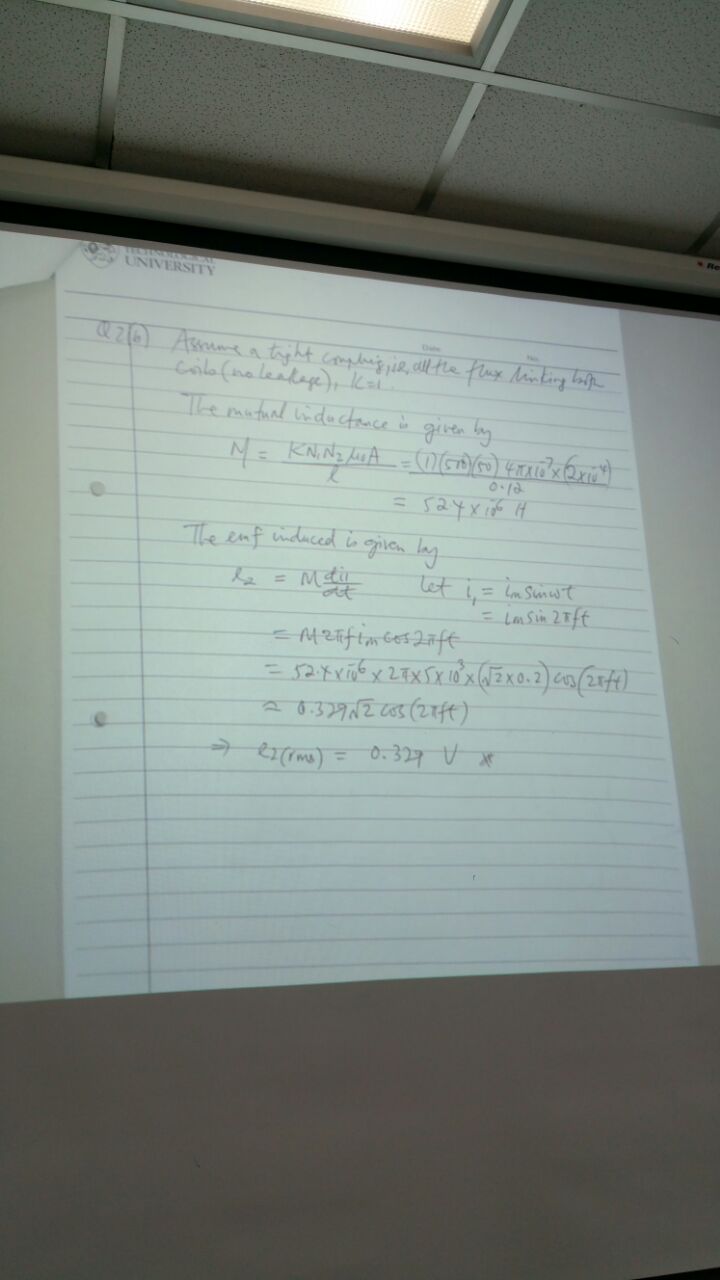 TECHNOLOGICAL
UNIVERSITY
Re
Date
No.
Q2(b) Assume a tight coupling, i.e, all the flux linking both
coils (no leakage), K=1.
The mutual inductance is given by
M = KN₁N₂μ₀A / l = (1)(500)(50) 4π×10⁻⁷×(2×10⁻⁴) / 0.12
= 52.4 × 10⁻⁶ H
The emf induced is given by
e₂ = M di₁/dt Let i₁ = iₘ sin ωt
= iₘ sin 2πft
= M 2πf iₘ cos 2πft
= 52.4×10⁻⁶ × 2π×5×10³×(√2×0.2) cos(2πft)
= 0.329√2 cos(2πft)
⇒ e₂(rms) = 0.329 V